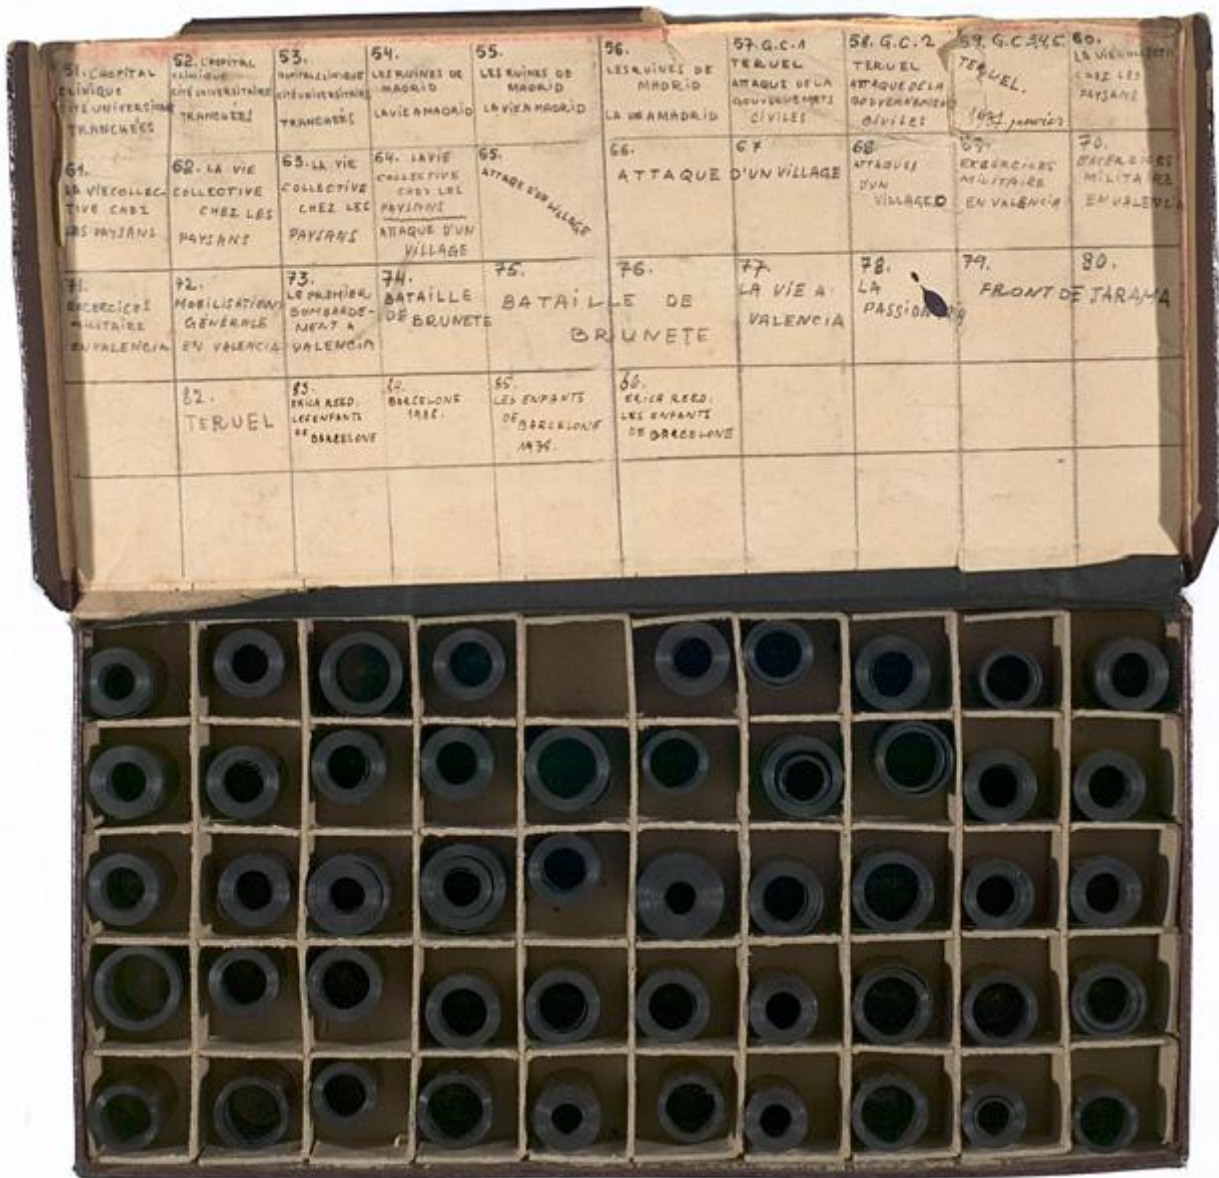 51. L'HOPITAL
CLINIQUE
CITÉ UNIVERSITAIRE
TRANCHÉES
52. L'HOPITAL
CLINIQUE
CITÉ UNIVERSITAIRE
TRANCHÉES
53.
HOPITAL CLINIQUE
CITÉ UNIVERSITAIRE
TRANCHÉES
54.
LES RUINES DE
MADRID
LA VIE A MADRID
55.
LES RUINES DE
MADRID
LA VIE A MADRID
56.
LES RUINES DE
MADRID
LA VIE A MADRID
57. G.C.1
TERUEL
ATTAQUE DE LA
CIVILES
58. G.C.2
TERUEL
ATTAQUE DE LA
CIVILES
59. G.C.3,4,5.
TERUEL.
janvier
60.
LA VIE COLLECTI
CHEZ LES
PAYSANS
61.
LA VIE COLLEC-
TIVE CHEZ
LES PAYSANS
62. LA VIE
COLLECTIVE
CHEZ LES
PAYSANS
63. LA VIE
COLLECTIVE
CHEZ LES
PAYSANS
64. LA VIE
COLLECTIVE
CHEZ LES
PAYSANS
ATTAQUE D'UN
VILLAGE
65.
ATTAQUE D'UN VILLAGE
66. 67
ATTAQUE D'UN VILLAGE
68
ATTAQUES
D'UN
VILLAGE
69.
EXERCICES
MILITAIRE
EN VALENCIA
70.
EXCERCICES
MILITAIRE
EN VALENCIA
71.
EXCERCICES
MILITAIRE
EN VALENCIA
72.
MOBILISATIONS
GÉNÉRALE
EN VALENCIA
73.
LE PREMIER
BOMBARDE-
MENT A
VALENCIA
74.
BATAILLE
DE BRUNETE
75. 76.
BATAILLE DE
BRUNETE
77.
LA VIE A
VALENCIA
78.
LA
PASSIONARIA
79. 80.
FRONT DE JARAMA
82.
TERUEL
83.
ERICA REED.
LES ENFANTS
DE BARCELONE
84.
BARCELONE
85.
LES ENFANTS
DE BARCELONE
86.
ERICA REED.
LES ENFANTS
DE BARCELONE